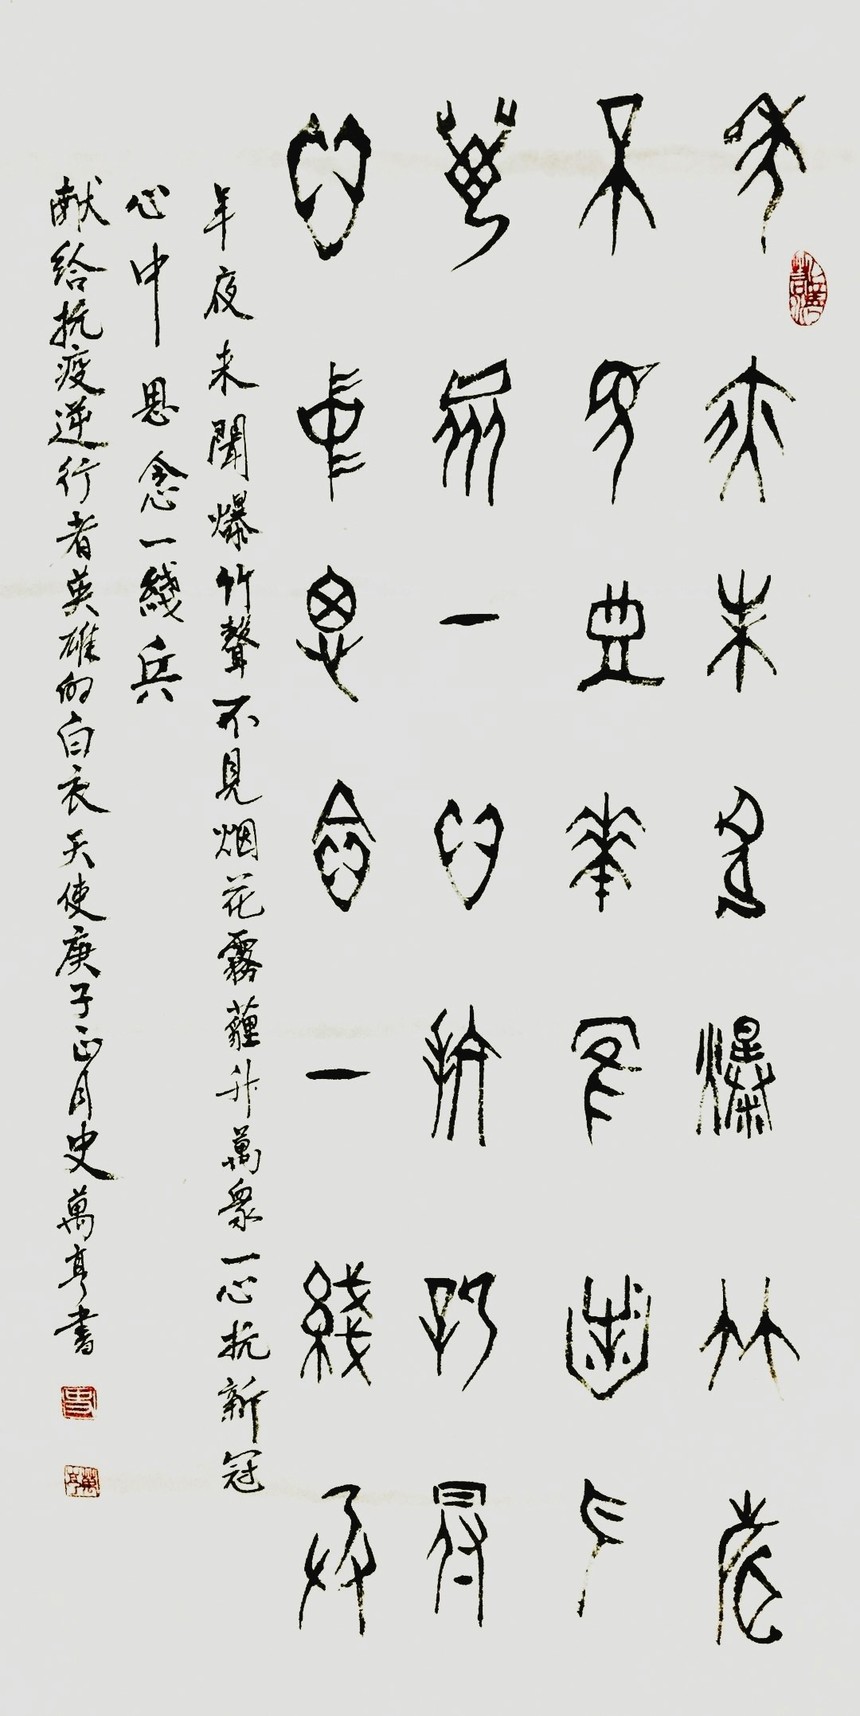 年夜未聞爆竹聲
不見烟花霧霾升
萬衆一心抗新冠
心中思念一綫兵
年夜未聞爆竹聲不見烟花霧霾升萬衆一心抗新冠
心中思念一綫兵
献给抗疫逆行者英雄的白衣天使庚子正月史萬亨書
史
萬亨